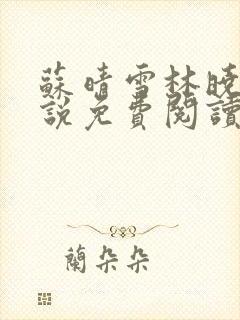 蘇晴雪林曉
說免費閱讀
蘭朵朵